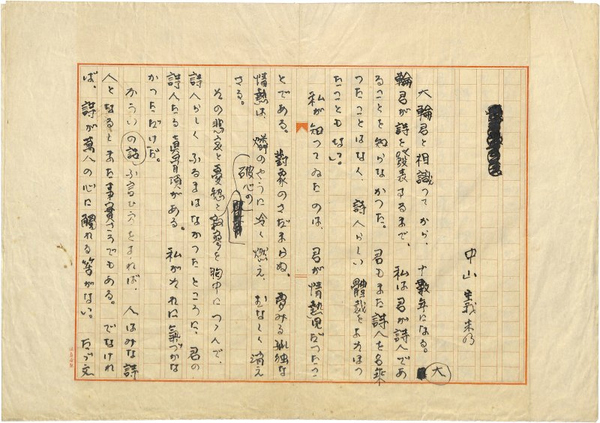 中山義秀
大輪君と相識つてから、十数年になる。大
輪君が詩を発表するまで、私は君が詩人であ
ることを知らなかつた。君もまた詩人を名乗
つたことはなく、詩人らしい体裁をよそほつ
たこともない。
私が知つてゐたのは、君が情熱児だつたこ
とである。対象のさだまらぬ、夢みる孤独な
情熱は、燐のやうに冷く燃え、むなしく消え
さる。
その悲哀と憂愁と寂寥を胸中につゝんで、
破心の
詩人らしくふるまはなかつたところに、君の
詩人たる真骨頂がある。私がそれに気づかな
かつただけだ。
かういふ言ひ方をすれば、人はみな詩
の詩
人となるしまた事実さうでもある。でなけれ
ば、詩が万人の心に触れる筈がない。たゞ文